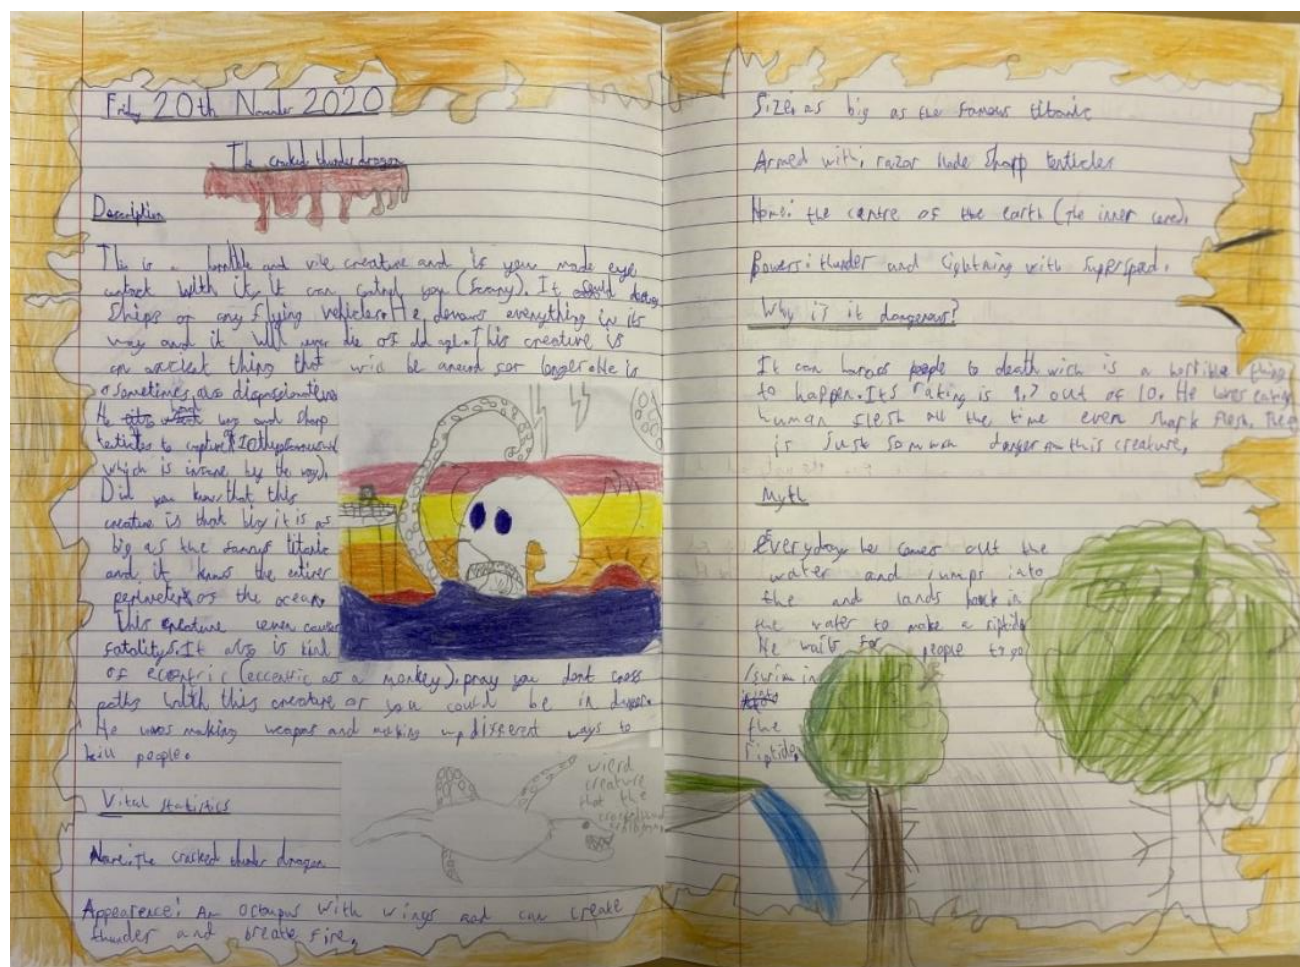 Friday 20th November 2020
The cracked thunder dragon
Description
This is a horrible and vile creature and if you made eye
contact with it, it can control you (Scary). It could destroy
Ships or any flying vehicles. He devours everything in its
way and it will never die of old age. This creature is
an ancient thing that will be around for longer. He is
sometimes also
He has long and sharp
tenticles to capture
which is insane by the way).
Did you know that this
creature is that big it is as
big as the famous titanic
and it knows the entirer
perimeter of the ocean.
This creature even causes
fatalitys. It also is kind
of eccentric (eccentric as a monkey). pray you dont cross
paths with this creature or you could be in danger.
He loves making weapons and making up different ways to
kill people.
Vital statistics
Name: The cracked thunder dragon
Appearence: An octopus with wings and can create
thunder and breate fire.
wierd
creature
that the
Size: as big as the famous titanic
Armed with: razor blade sharp tenticles
Home: the centre of the earth (the inner core).
Powers: thunder and lightning with superspeed.
Why is it dangerous?
It can harass people to death wich is a horrible thing
to happen. Its rating is 9.7 out of 10. He loves eating
human flesh all the time even shark flesh. There
is Just so much danger on this creature.
Myth
Everyday he comes out the
water and jumps into
the and lands back in
the water to make a riptide
He waits for people to go
/swim in
the
riptide.